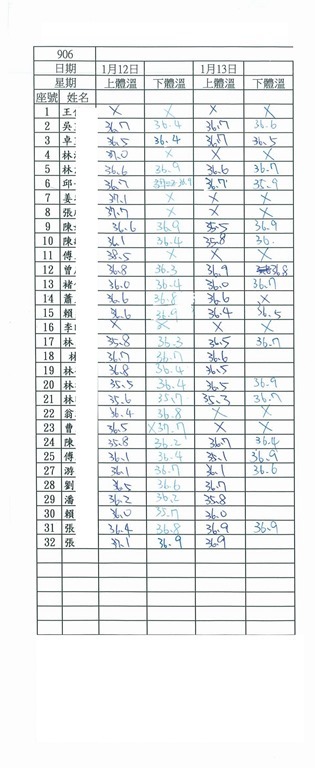 906
日期 1月12日 1月13日
星期 上體溫 下體溫 上體溫 下體溫
座號 姓名
1 王 X X X X
2 吳 36.7 36.4 36.7 36.6
3 卓 36.5 36.4 36.7 36.5
4 林 37.0 X X X
5 林 36.6 36.9 36.6 36.7
6 邱 36.7 36.7 35.9
7 姜 37.1 X X X
8 張 37.7 X X X
9 陳 36.6 36.9 35.5 36.9
10 陳 36.1 36.4 35.8 36.
11 傅 38.5 X X X
12 曾 36.8 36.3 36.9 36.8
13 褚 36.0 36.4 36.0 36.7
14 蕭 36.6 36.8 36.6 X
15 賴 36.6 36.9 36.4 36.5
16 李 X X X X
17 林 35.8 36.3 36.5 36.7
18 林 36.7 36.7 36.6
19 林 36.8 36.4 36.5
20 林 35.5 36.4 36.5 36.9
21 林 35.6 35.7 35.3 36.7
22 翁 36.4 36.8 X X
23 曹 36.5 X37.7 X X
24 陳 35.8 36.2 36.7 36.4
25 傅 36.1 36.4 35.1 36.9
27 游 36.1 36.7 36.1 36.6
28 劉 36.5 36.6 36.7
29 潘 36.2 36.2 35.8
30 賴 36.0 35.7 36.0
31 張 36.4 36.8 36.9 36.9
32 張 37.1 36.9 36.9